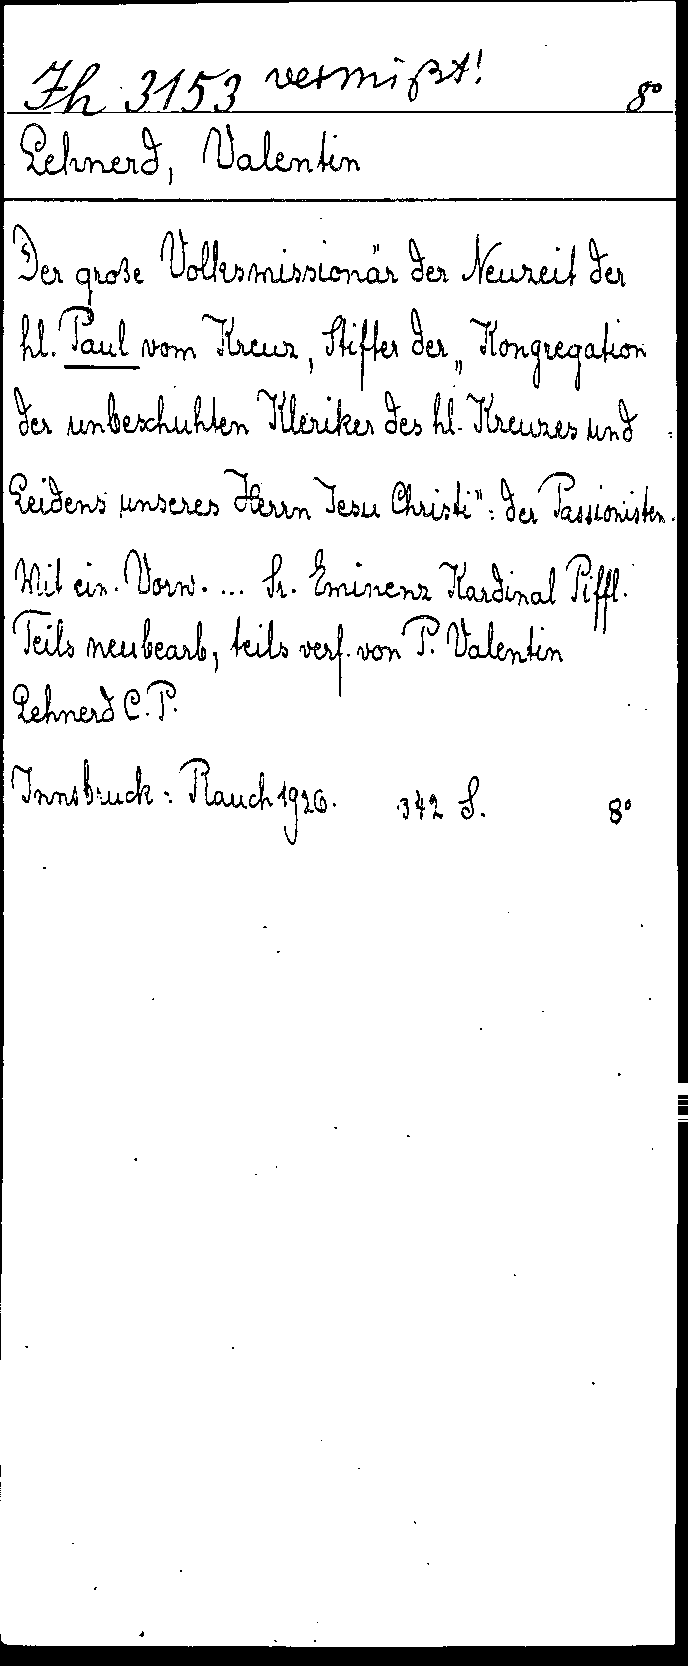 Zh 3153 vermißt! 8°
Lehnerd, Valentin
Der große Volksmissionär der Neuzeit der
hl. Paul vom Kreuz, Stifter der „Kongregation
der unbeschuhten Kleriker des hl. Kreuzes und
Leidens unseres Herrn Jesu Christi": der Passionisten.
Mit ein. Vorw. ... Sr. Eminenz Kardinal Piffl.
Teils neubearb., teils verf. von P. Valentin
Lehnerd C. P.
Innsbruck: Rauch 1926. 342 S. 8°